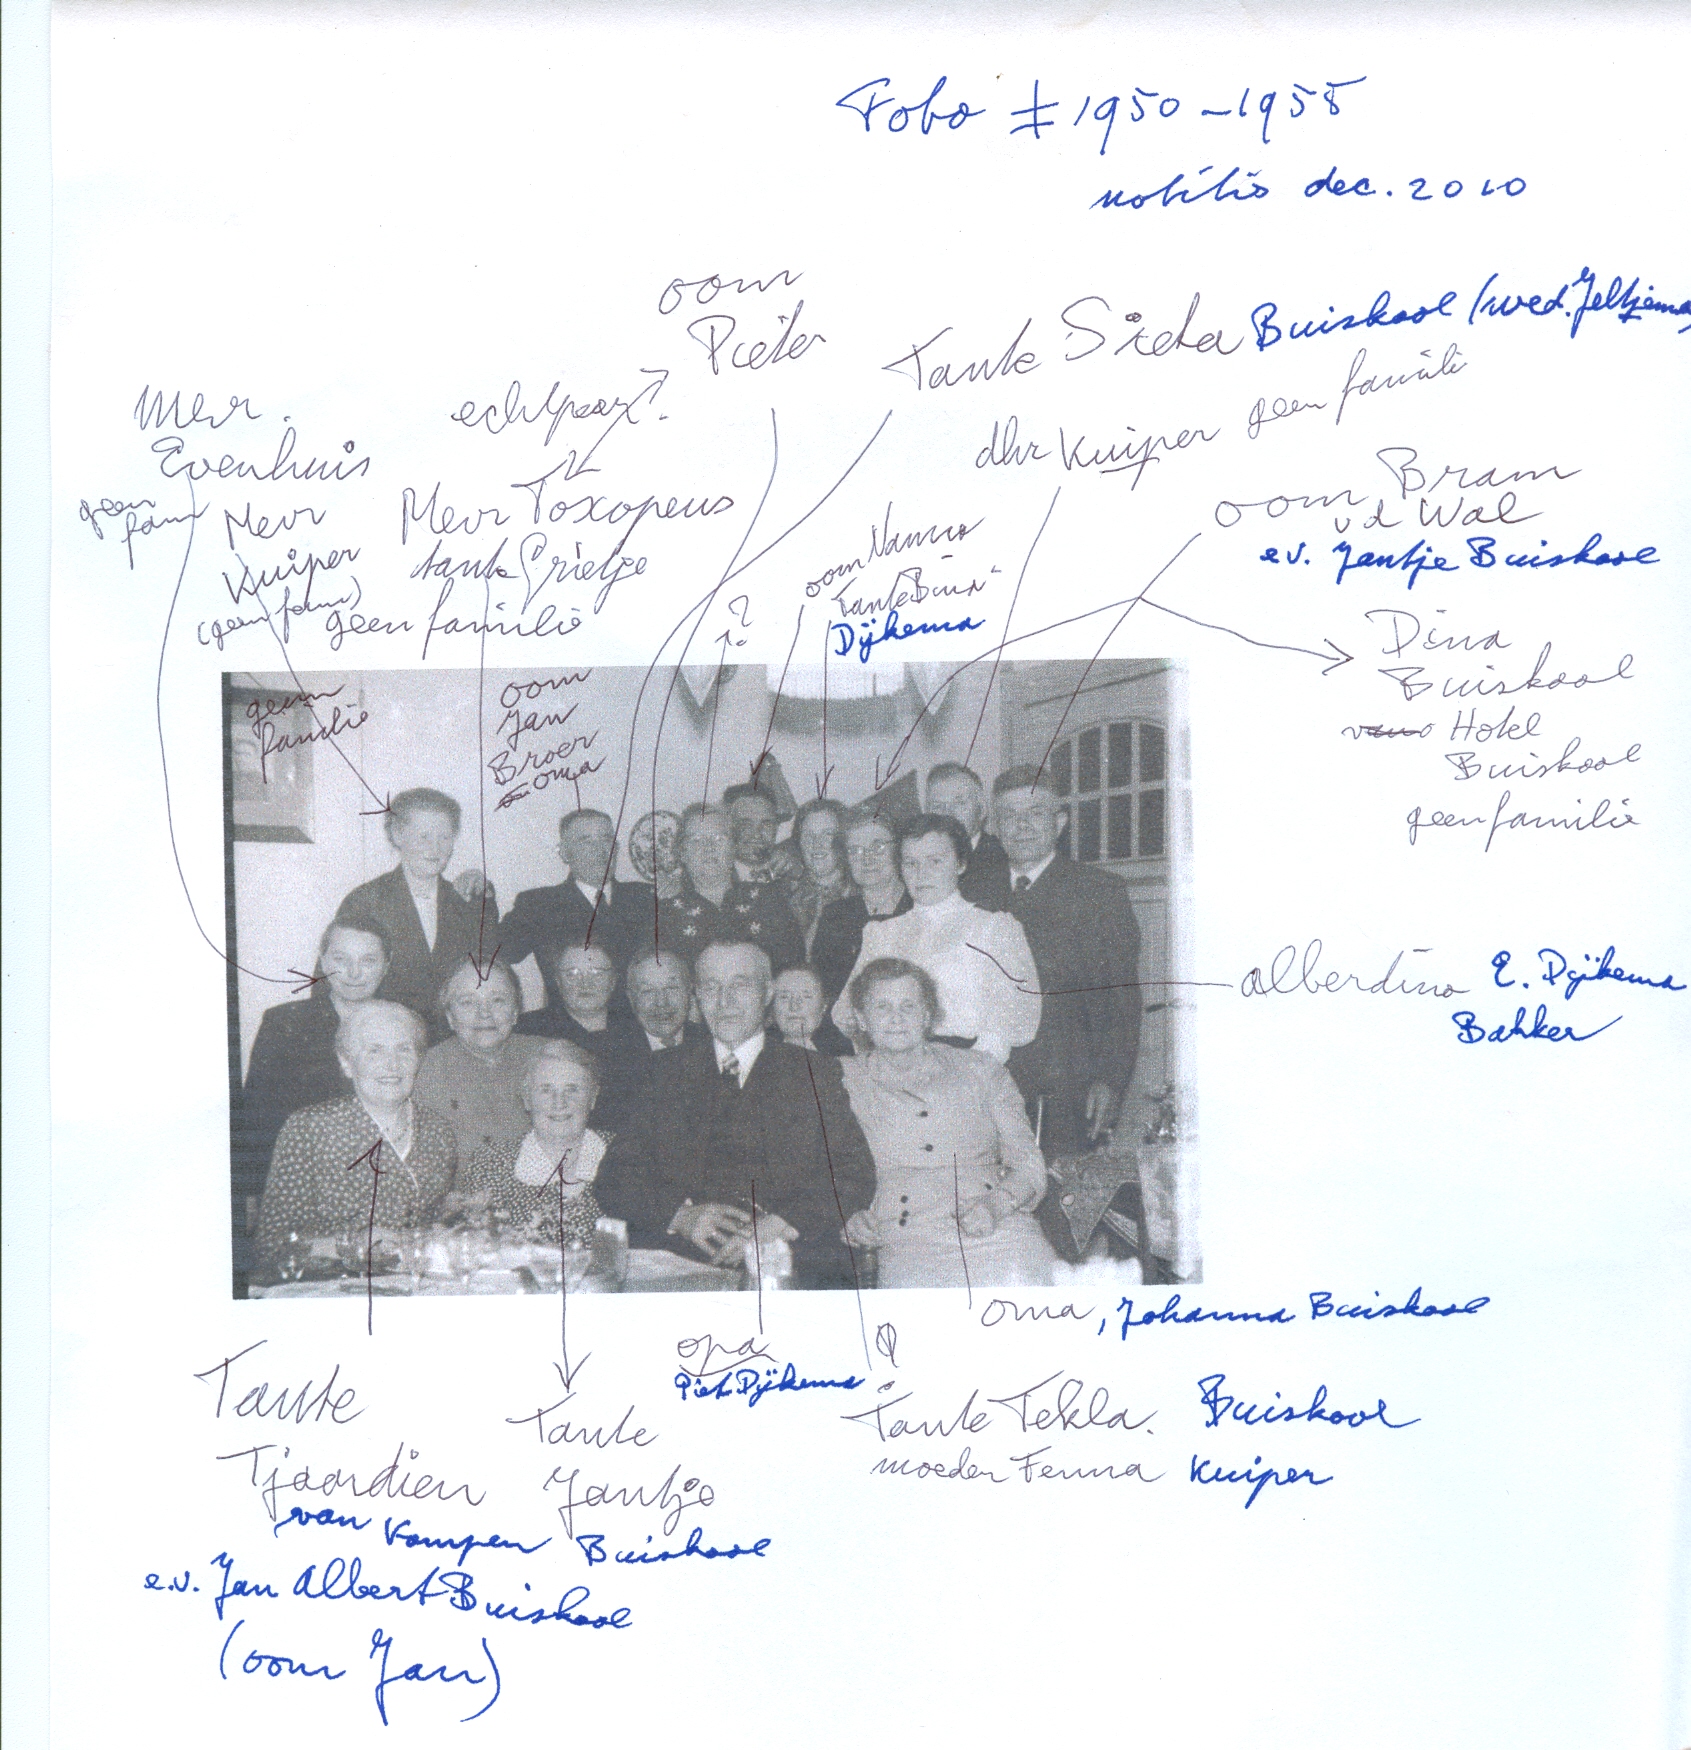 Foto ± 1950-1955
notitie dec. 2010
oom
Pieter
Tante Sieta Buiskool (wed. Jeltjema)
echtpaar?
dhr Kuiper geen familie
Mevr.
Evenhuis
geen
fam
Mevr
Kuiper
(geen fam)
Mevr Toxopeus
tante Grietje
geen familie
oom Nanno
Tante Dina
Dijkema
?
oom Bram
v d Wal
e.v. Jantje Buiskool
Dina
Buiskool
Hotel
Buiskool
geen familie
geen
familie
oom
Jan
Broer
oma
Alberdina E. Dijkema
Bakker
oma, Johanna Buiskool
opa
Piet Dijkema
?
Tante Tekla. Buiskool
moeder Fenna Kuiper
Tante
Tjaardien
van Kampen
e.v. Jan Albert Buiskool
(oom Jan)
Tante
Jantje
Buiskool